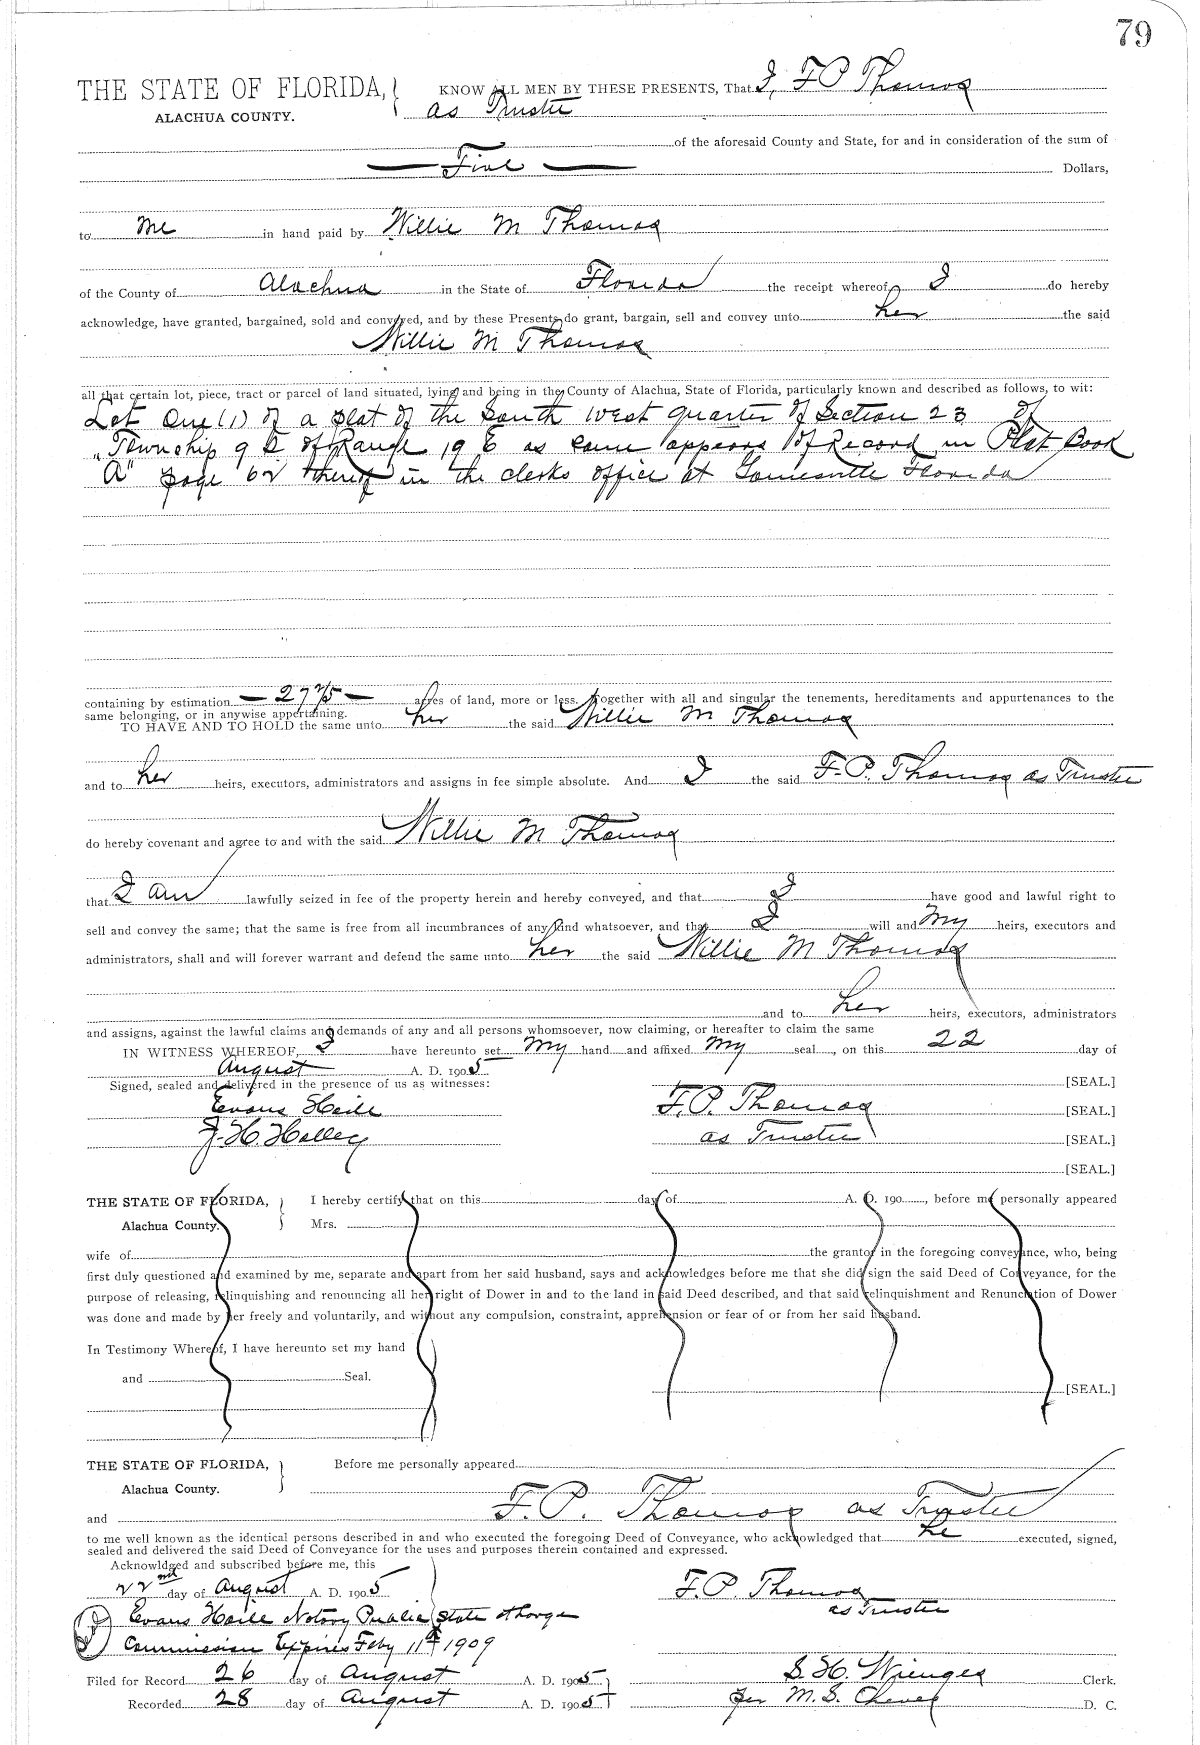 79
THE STATE OF FLORIDA, KNOW ALL MEN BY THESE PRESENTS, That I, F P Thomas
ALACHUA COUNTY. as Trustee
of the aforesaid County and State, for and in consideration of the sum of
Five Dollars,
to me in hand paid by Willie M Thomas
of the County of Alachua in the State of Florida the receipt whereof I do hereby
acknowledge, have granted, bargained, sold and conveyed, and by these Presents do grant, bargain, sell and convey unto her the said
Willie M Thomas
all that certain lot, piece, tract or parcel of land situated, lying and being in the County of Alachua, State of Florida, particularly known and described as follows, to wit:
Lot One (1) of a plat of the South West quarter of Section 23 of
Township 9 S of Range 19 E as same appears of Record in Plat Book
"A" page 62 thereof in the clerks office at Gainesville Florida
containing by estimation 27 acres of land, more or less. Together with all and singular the tenements, hereditaments and appurtenances to the
same belonging, or in anywise appertaining.
TO HAVE AND TO HOLD the same unto her the said Willie M Thomas
and to her heirs, executors, administrators and assigns in fee simple absolute. And I the said F. P. Thomas as Trustee
do hereby covenant and agree to and with the said Willie M Thomas
that I am lawfully seized in fee of the property herein and hereby conveyed, and that I have good and lawful right to
sell and convey the same; that the same is free from all incumbrances of any kind whatsoever, and that I will and my heirs, executors and
administrators, shall and will forever warrant and defend the same unto her the said Willie M Thomas
and to her heirs, executors, administrators
and assigns, against the lawful claims and demands of any and all persons whomsoever, now claiming, or hereafter to claim the same
IN WITNESS WHEREOF, I have hereunto set my hand and affixed my seal, on this 22 day of
August A. D. 1905
Signed, sealed and delivered in the presence of us as witnesses: [SEAL.]
Evans Haile F. P. Thomas [SEAL.]
J. H. Halley as Trustee [SEAL.]
[SEAL.]
THE STATE OF FLORIDA, I hereby certify that on this day of A. D. 190 , before me personally appeared
Alachua County. Mrs.
wife of the grantor in the foregoing conveyance, who, being
first duly questioned and examined by me, separate and apart from her said husband, says and acknowledges before me that she did sign the said Deed of Conveyance, for the
purpose of releasing, relinquishing and renouncing all her right of Dower in and to the land in said Deed described, and that said relinquishment and Renunciation of Dower
was done and made by her freely and voluntarily, and without any compulsion, constraint, apprehension or fear of or from her said husband.
In Testimony Whereof, I have hereunto set my hand
and Seal.
[SEAL.]
THE STATE OF FLORIDA, Before me personally appeared
Alachua County.
and F. P. Thomas as Trustee
to me well known as the identical persons described in and who executed the foregoing Deed of Conveyance, who acknowledged that he executed, signed,
sealed and delivered the said Deed of Conveyance for the uses and purposes therein contained and expressed.
Acknowldged and subscribed before me, this
22nd day of August A. D. 1905 F. P. Thomas
as Trustee
Evans Haile Notary Public State at large
Commission Expires Feby 11th 1909
Filed for Record 26 day of August A. D. 1905 S. H. Wienges Clerk.
Recorded 28 day of August A. D. 1905 per M. S. Cheves D. C.